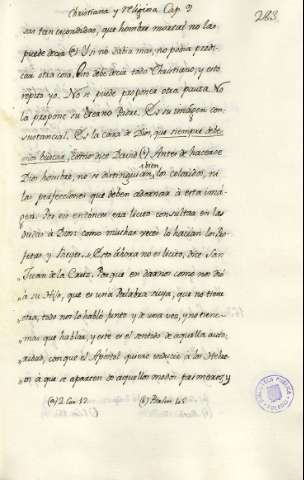 Christiana y Religiosa Cap. 9
283
son tan escondidas, que hombre mortal no las
puede decir. Si no sabia mas, no podia predi-
car otra cosa. Esto debe decir todo Christiano, y esto
repito yo. No se puede proponer otra pauta. No
la propone su Eterno Padre. Es su imagen con-
substancial. Es la cara de Dios, que siempre debe-
mos buscar, como dice David (b) Antes de hacerse
bien
Dios hombre, no se distinguian, los coloridos, ni
las perfecciones que deben adornar à esta imá-
gen. Por eso entonces era licito consultar en las
dudas à Dios: como muchas veces lo hacian los Pro-
fetas y Reyes. Esto ahora no es licito, dice San
Juan de la Cruz. Porque en darnos como nos dió
à su Hijo, que es una Palabra suya, que no tiene
otra, todo nos lo habló junto y de una vez, y no tiene
mas que hablar, y este es el sentido de aquella auto-
ridad, con que el Apóstol quiere inducir à los Hebre-
os à que se aparten de aquellos modos primeros, y
(a) 2 Cor 12 (b) Psalm 105